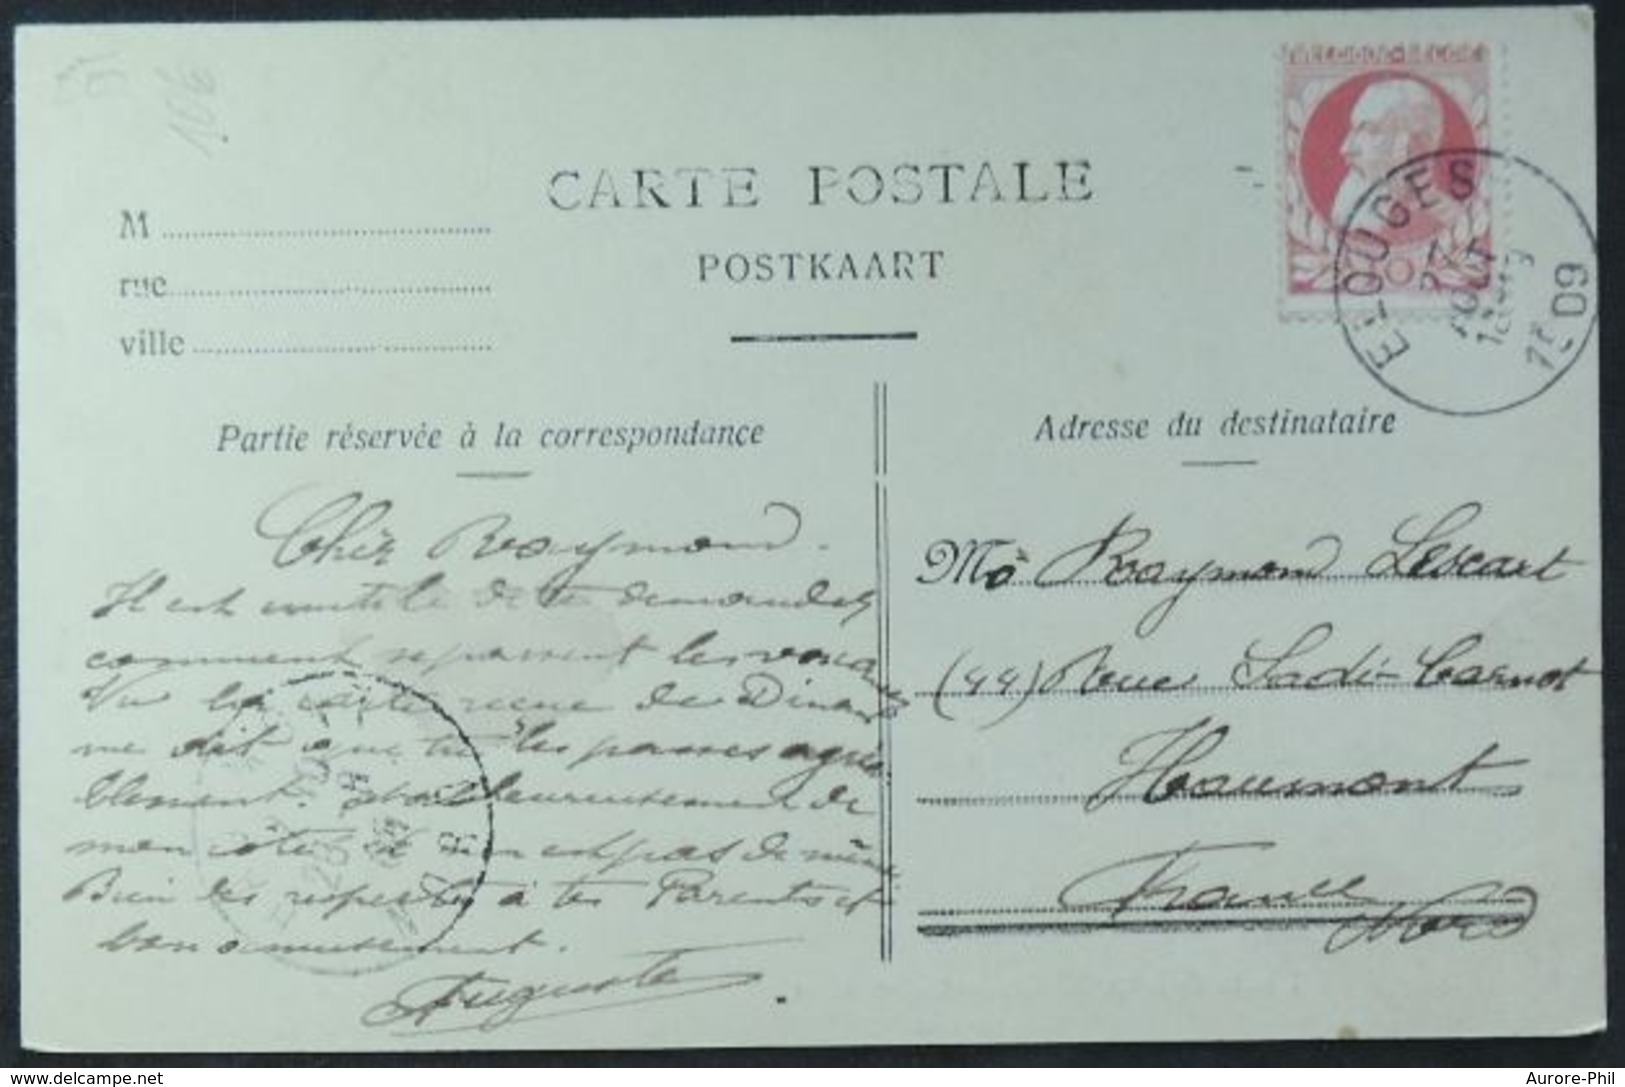 106
CARTE POSTALE
POSTKAART
M
rue
ville
ELOUGES
AOUT
1909
Partie réservée à la correspondance
Adresse du destinataire
Chèr Raymond.
Il est inutile de te demander
comment se passent les vacan
Vu la carte recue de Dinan
me dit que tu les passes agréa
blement. malheureusement de
mon côté il n'en est pas de même
Bien des respectes à tes Parents et
bon amusement.
Auguste
Mr Raymond Lescart
(44) Rue Sadi-Carnot
Haumont
France
Nord
www.delcampe.net
Aurore-Phil